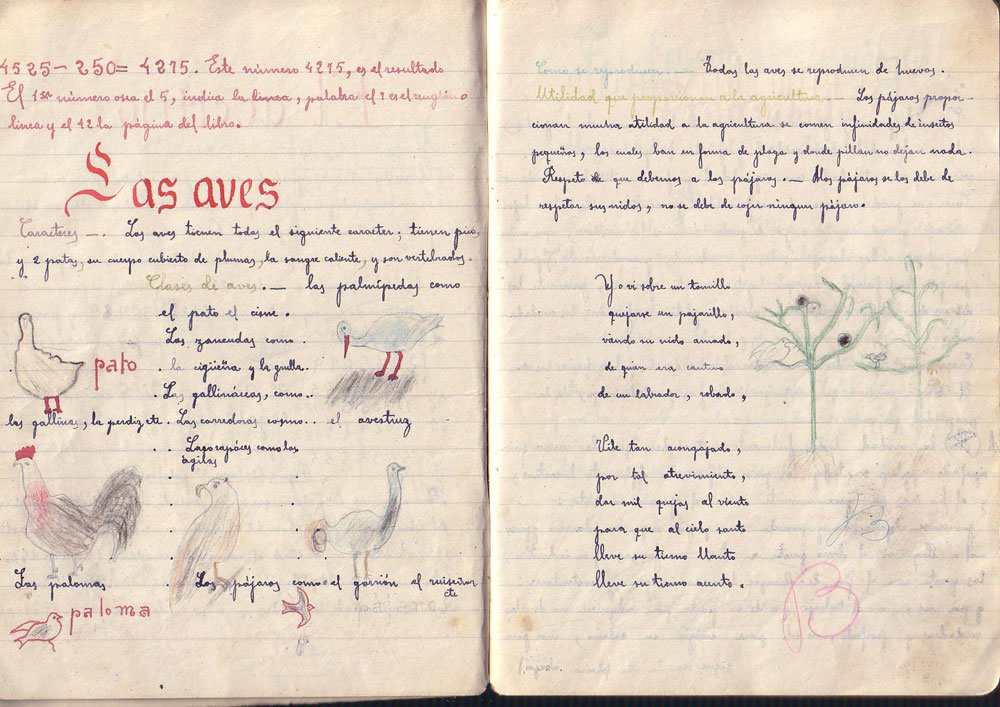 4525 - 250 = 4275. Este número 4275, es el resultado
El 1er número osea el 5, indica la linea, palabra el 7 es el renglón o
linea y el 42 la página del libro.
Las aves
Caracteres —. Las aves tienen todas el siguiente caracter; tienen pico,
y 2 patas, su cuerpo cubierto de plumas, la sangre caliente, y son vertebrados.
Clases de aves. — las palmípedas como
el pato el cisne.
Las zancudas como
pato
la cigüeña y la grulla.
Las gallináceas, como..
las gallinas, la perdiz etc. Las corredoras como.. el avestruz
Las rapáces como las
ágilas
Las palomas
Los pájaros como el gorrión el ruiseñor
etc
paloma
Como se reproducen. — Todas las aves se reproducen de huevos.
Utilidad que proporcionan a la agricultura. — Los pájaros propor-
cionan mucha utilidad a la agricultura se comen infinidades de insectos
pequeños, los cuales ban en forma de plaga y donde pillan no dejan nada.
Respeto que debemos a los pájaros. — A los pájaros se los debe de
respetar sus nidos, no se debe de cojer ningun pájaro.
Yo vi sobre un tomillo
quejarse un pajarillo,
viendo su nido amado,
de quien era cautivo
de un labrador, robado,
Vile tan acongojado,
por tal atrevimiento,
dar mil quejas al viento
para que al cielo santo
lleve su tierno llanto
lleve su tierno acento.
B
B